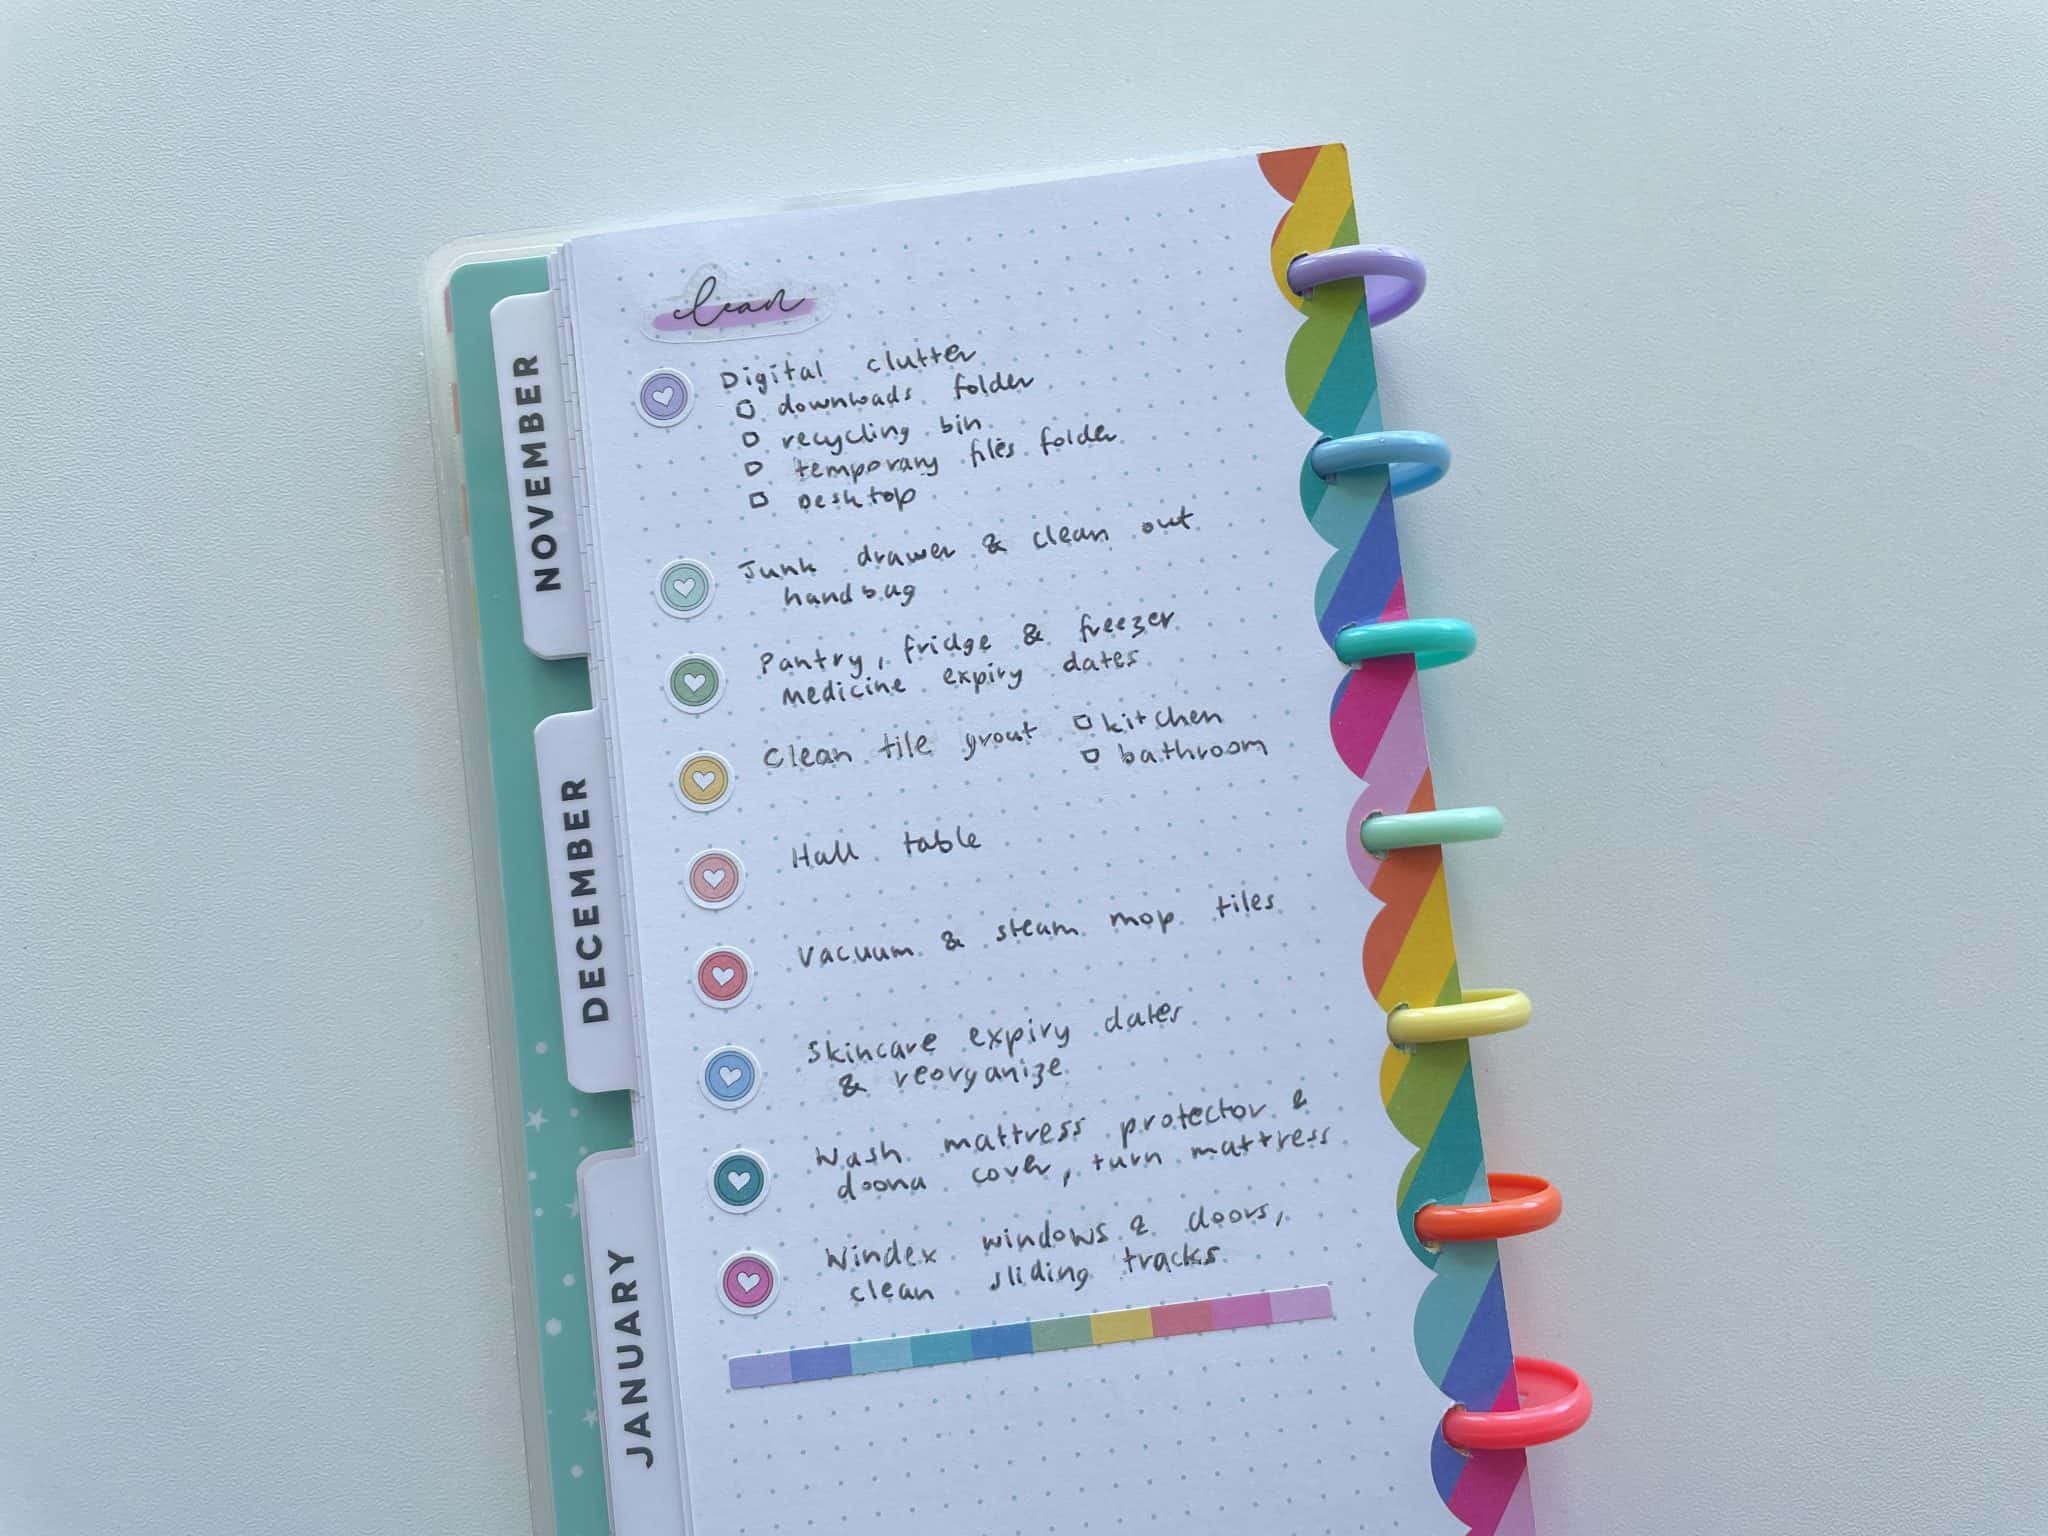 clean
Digital clutter
downloads folder
recycling bin
temporary files folder
Desktop
Junk drawer & clean out
handbag
Pantry, fridge & freezer
medicine expiry dates
Clean tile grout kitchen
bathroom
Hall table
Vacuum & steam mop tiles
Skincare expiry dates
& reorganize
Wash mattress protector &
doona cover, turn mattress
Windex windows & doors,
clean sliding tracks
NOVEMBER
DECEMBER
JANUARY